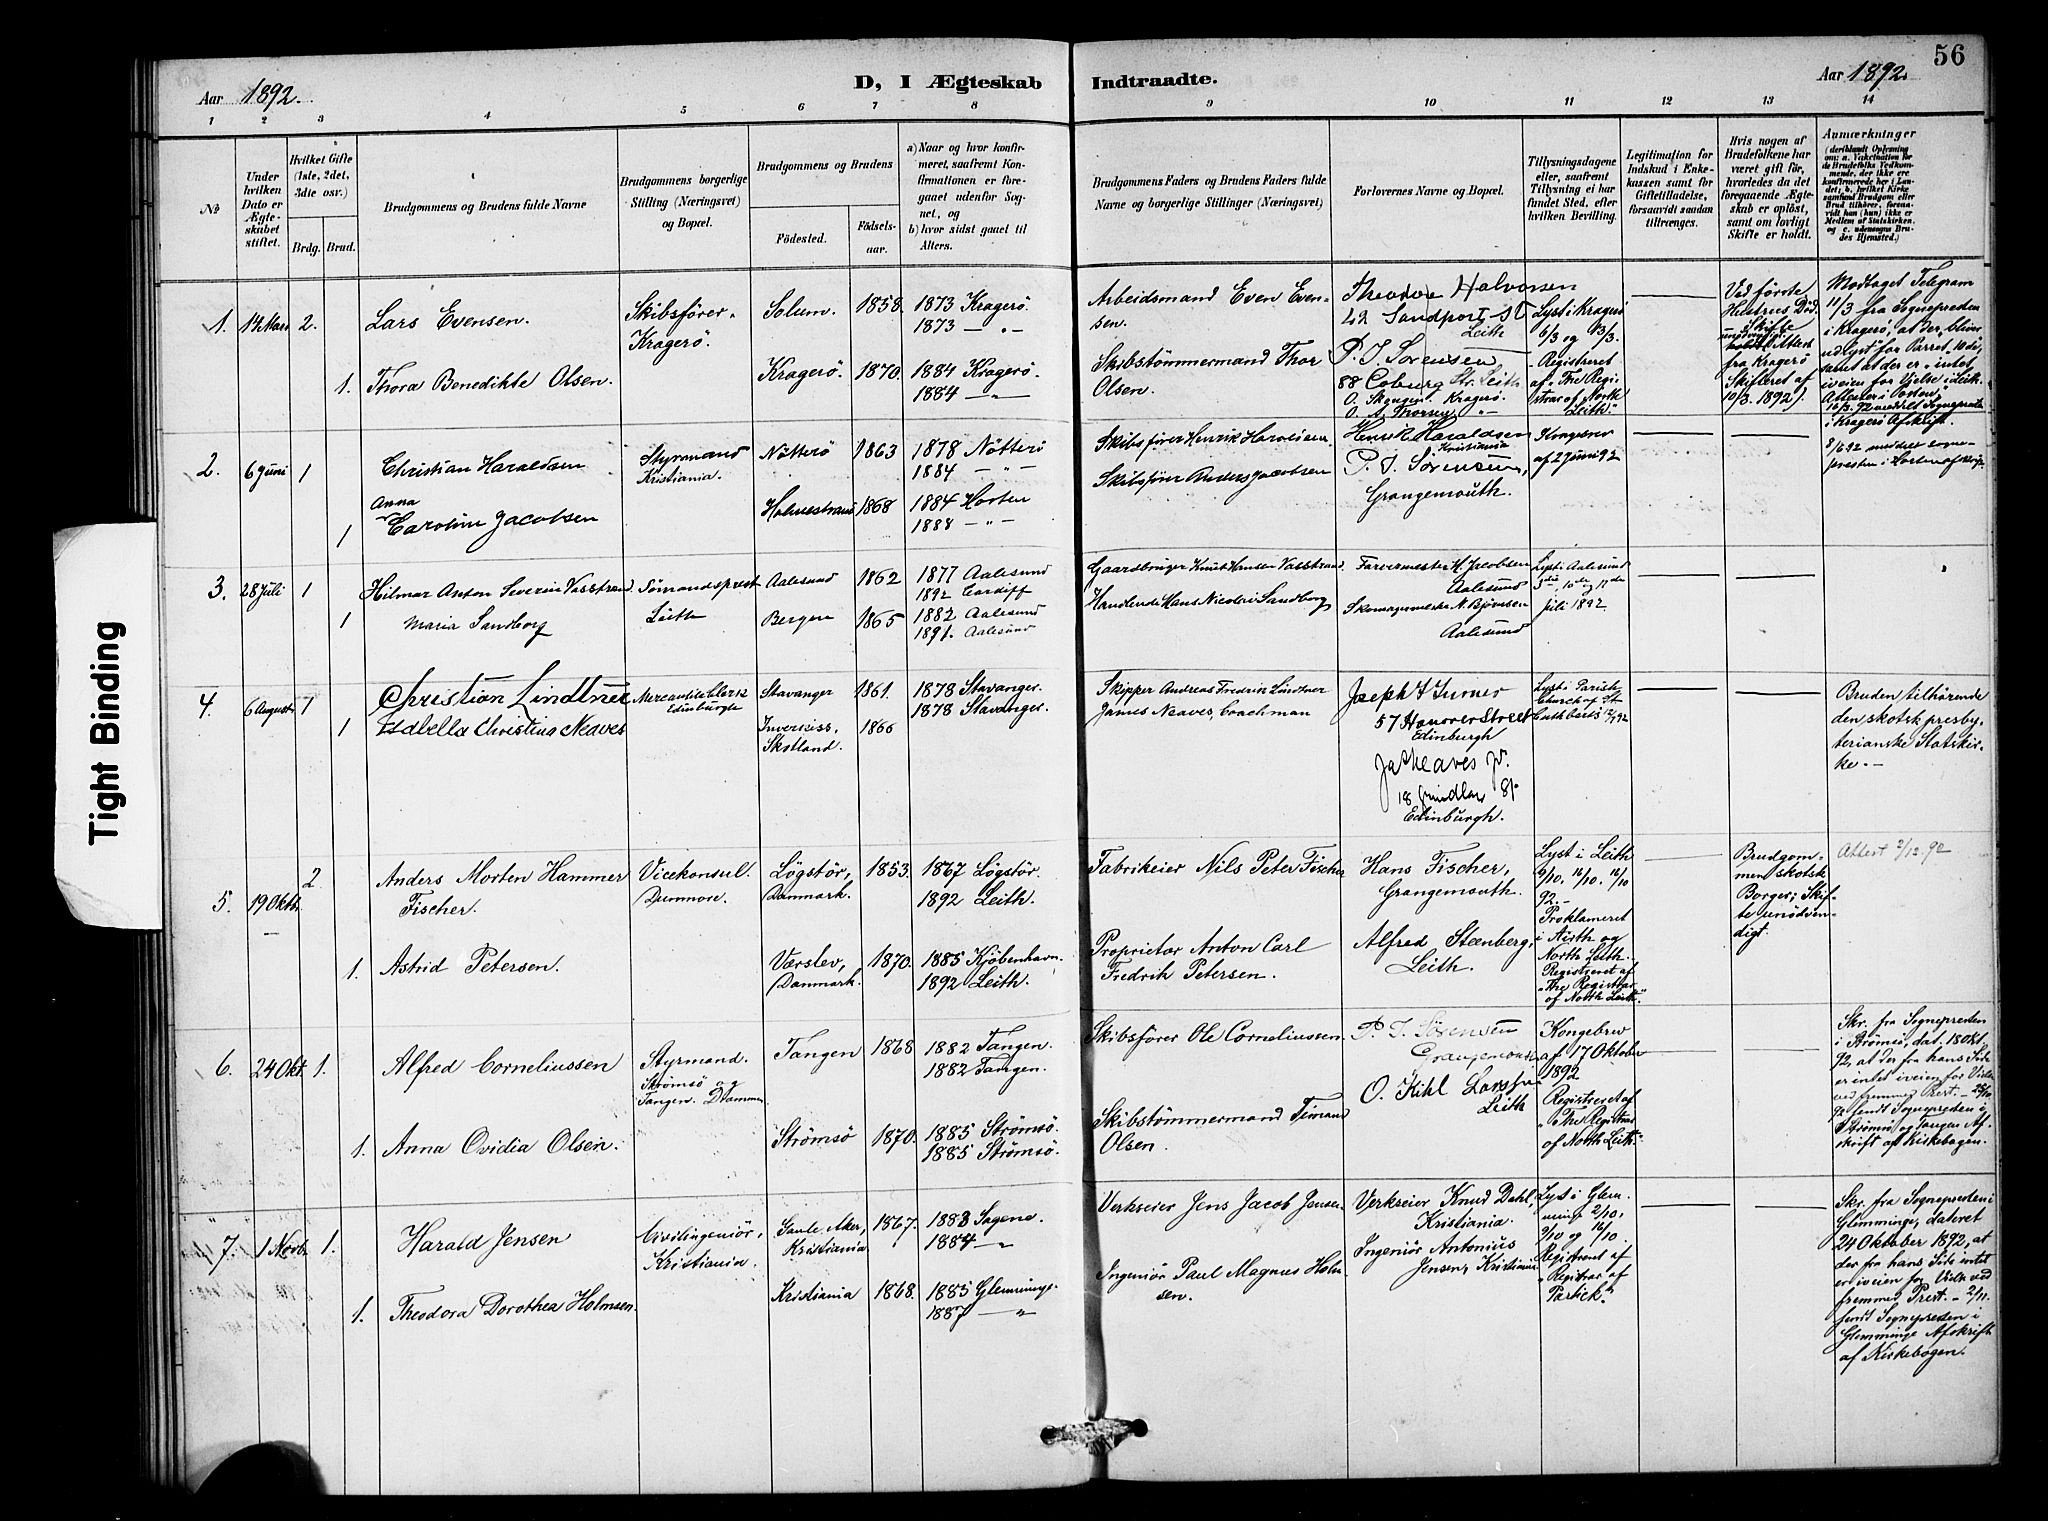 56
Aar 1892.
D, I Ægteskab Indtraadte.
Aar 1892.
1 2 3 4 5 6 7 8 9 10 11 12 13 14
№
Under hvilken Dato er Ægteskabet stiftet.
Hvilket Gifte (1ste, 2det, 3die osv.)
Brdg. Brud.
Brudgommens og Brudens fulde Navne
Brudgommens borgerlige Stilling (Næringsvei) og Bopæl.
Brudgommens og Brudens
Fødested.
Fødselsaar.
a) Naar og hvor konfirmeret, saafremt Konfirmationen er foregaaet udenfor Sognet, og
b) hvor sidst gaaet til Alters.
Brudgommens Faders og Brudens Faders fulde Navne og borgerlige Stillinger (Næringsvei)
Forlovernes Navne og Bopæl.
Tillysningsdagene eller, saafremt Tillysning ei har fundet Sted, efter hvilken Bevilling.
Legitimation for Indskud i Enkekassen samt for Giftetilladelse, forsaavidt saadan tiltrænges.
Hvis nogen af Brudefolkene har været gift før, hvorledes da det foregaaende Ægteskab er opløst, samt om lovligt Skifte er holdt.
Anmærkninger (deriblandt Oplysning om: a. Vakcination for de Brudefolks Vedkommende, der ikke ere konfirmerede her i Landet; b. hvilken Kirkesamfund Brudgom eller Brud tilhører, forsaavidt han (hun) ikke er Medlem af Statskirken, og c. udensogns Brudes Hjemsted.)
1. 14 Mars 2.
Lars Evensen.
Skibsfører.
Kragerö.
Solum. 1858.
1873 Kragerö
1873 — " —
Arbeidsmand Even Evensen.
Theodore Halvorsen
42 Sandport St
Leith
Lyst i Kragerö
6/3 og 13/3.
Ved første Hustrues Död.
Skifte
Attest
fra Kragerö
Skifteret af
10/3. 1892.
Modtaget Telegram
11/3 fra Sognepresten
i Kragerö, at der bliver
udlyst for Parret
samt at der er intet
iveien for Vielse i Leith.
1. Thora Benedikte Olsen.
Kragerö. 1870.
1884 Kragerö.
1884 — " —
Skibstömmermand Thor
Olsen.
P. J. Sørensen
88 Coburg Str. Leith
Registreret
af "The Registrar
of North
Leith."
Kragerö Afskrift.
2. 6 Juni 1
Christian Haraldsen
Styrmand
Kristiania.
Nötterö 1863
1878 Nötterö
1884 — " —
Skibsfører Henrik Haraldsen
Henrik Haraldsen
Kristiania
Kongebrev
af 2 Juni 92
8/6 92 meddelt Sognepresten i Horten afskrift
1 Anna
Caroline Jacobsen
Holmestrand 1868
1884 Horten
1888 — " —
Skibsfører Anders Jacobsen
P. J. Sørensen,
Grangemouth.
3. 28 Juli 1
Hilmar Anton Severin Vasstrand
Sömandsprest
Leith
Aalesund 1862
1877 Aalesund
1892 Cardiff
Gaardbruger Knut Hansen Vasstrand.
Farvermester H. Jacobsen
Aalesund
Lyst i Aalesund
3die, 10de og 17de
Juli 1892.
1 Maria Sandborg
Bergen 1865
1882 Aalesund
1891. Aalesund
Handlende Hans Nicolai Sandborg
Skomagermester N. Björnsen
Aalesund
4. 6 August 1
Christian Lindtner
Mercantile Clerk
Edinburgh
Stavanger 1861.
1878 Stavanger.
1878 Stavanger.
Skipper Andreas Fredrik Lindtner
Joseph H Turner
57 Hanover Street
Edinburgh
Lyst i Parish
Church of St
Cuthberts
Bruden tilhørende
den skotsk presbyterianske Statskirke. —
1 Isabella Christina Neaves
Inverniss,
Skotland. 1866
James Neaves, Coachman
Jas Neaves Jr.
18
Edinburgh.
5. 19 Oktb. 2
Anders Morten Hammer
Fischer.
Vicekonsul.
Dunmore.
Lögstör,
Danmark. 1853.
1867 Lögstör.
1892 Leith.
Fabrikeier Nils Peter Fischer
Hans Fischer,
Grangemouth.
Lyst i Leith
92. —
Proklameret
i Airth og
North Leith.
Registreret af
"The Registrar
of North Leith."
Brudgommen skotsk
Borger; Skifte unödvendigt.
Attest 2/12 92
1. Astrid Petersen.
Værslev,
Danmark. 1870.
1885 Kjöbenhavn.
1892 Leith.
Proprietær Anton Carl
Fredrik Petersen.
Alfred Steenberg,
Leith.
6. 24 Okt. 1.
Alfred Corneliussen
Styrmand.
Strömsö og
Tangen. Drammen
Tangen 1868
1882 Tangen.
1882 Tangen.
Skibsförer Ole Corneliussen.
P. J. Sørensen
Grangemouth
Kongebrev
af 17 Oktober
1892
Registreret af
"The Registrar
of North Leith."
Skr. fra Sognepresten
i Strömsö, dat. 18 Okt.
92, at der fra hans Side
er intet iveien for Vielse
ved fremmed Prest. —
sendt Sognepresten i
Strömsö og Tangen Afskrift af Kirkebogen.
1. Anna Ovidia Olsen.
Strömsö 1870.
1885 Strömsö.
1885 Strömsö.
Skibstömmermand
Olsen.
O. Kihl
Leith
7. 1 Novb. 1.
Harald Jensen
Civilingeniör,
Kristiania.
Gamle Aker,
Kristiania 1867.
1883 Sagene.
1884 — "
Verkseier Jens Jacob Jensen
Verkseier Knud Dahl,
Kristiania.
Lyst i Glemminge 2/10,
9/10 og 16/10.
Registreret af
"Registrar of
Partick."
Skr. fra Sognepresten i
Glemminge, dateret
24 Oktober 1892, at
der fra hans Side intet
er iveien for Vielse ved
fremmed Prest. — 2/11.
sendt Sognepresten i
Glemminge Afskrift
af Kirkebogen.
1. Theodora Dorothea Holmsen.
Kristiania 1868.
1885 Glemminge
1887 — "
Ingeniör Paul Magnus Holmsen.
Ingeniör Antonius
Jensen, Kristiania
Tight Binding